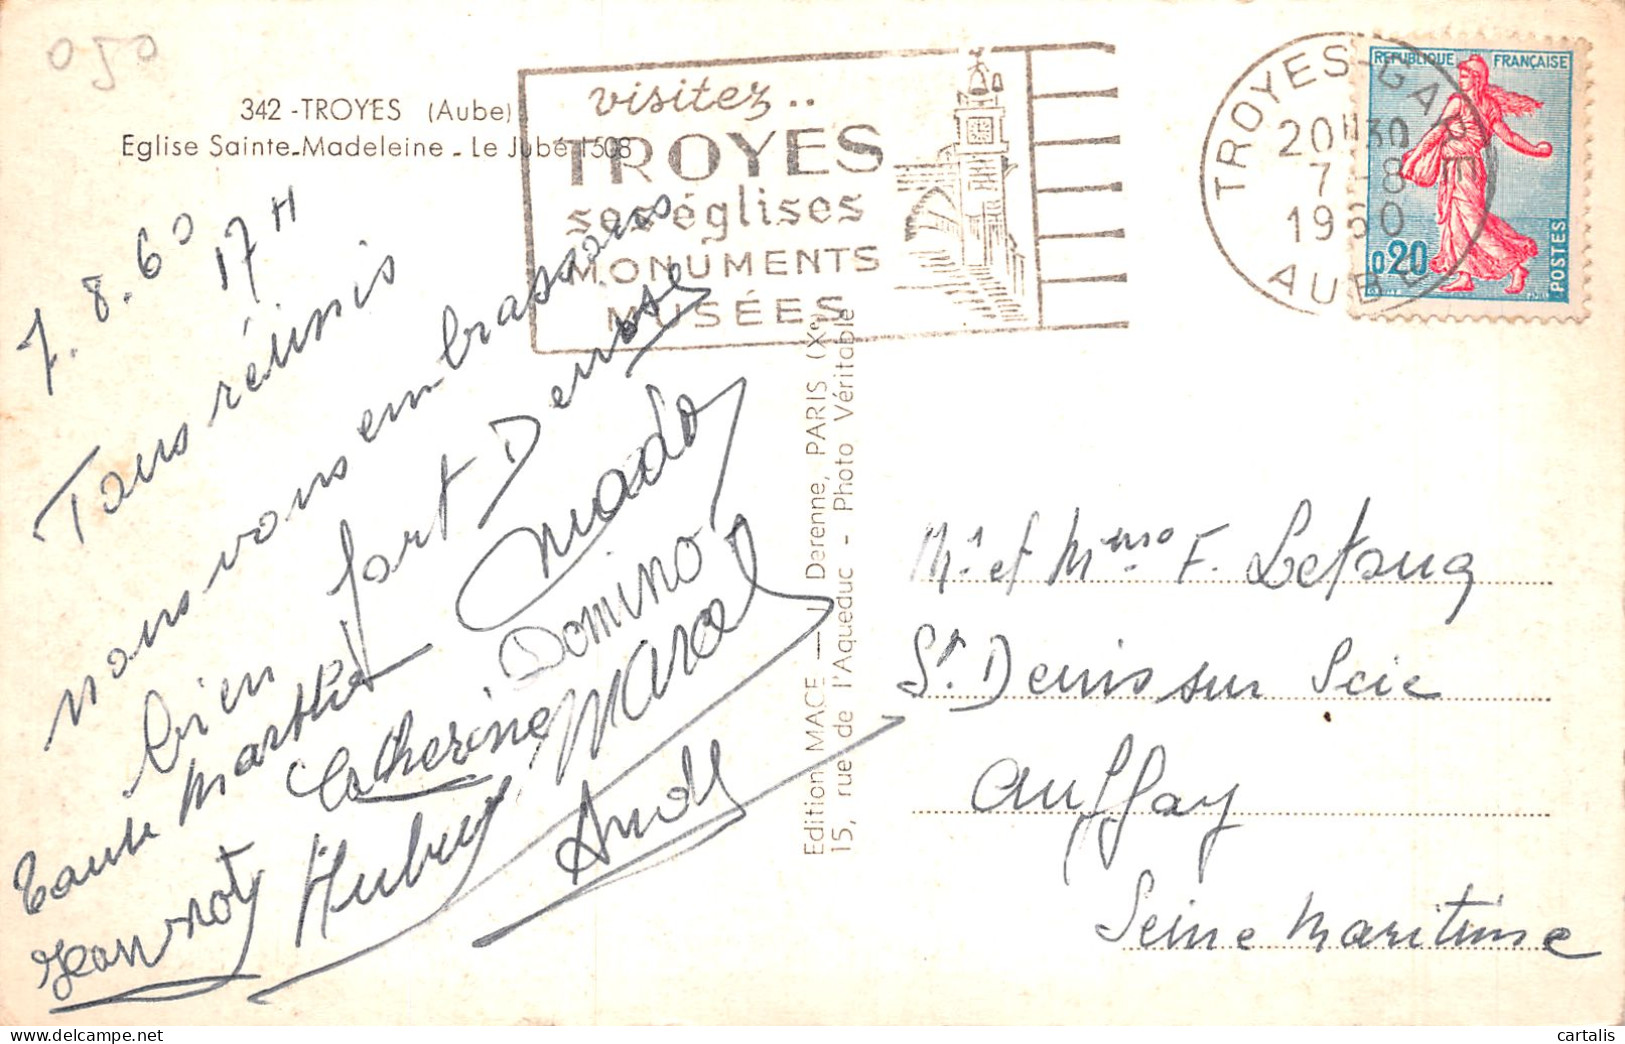 050
342 - TROYES (Aube)
Eglise Sainte-Madeleine - Le Jubé 1508
visitez..
TROYES
ses églises
MONUMENTS
MUSÉES
TROYES-GARE
20H30
7-8
1960
AUBE
REPUBLIQUE FRANÇAISE
0,20
POSTES
7.8.60
17H
Tous réunis
nous vous embrassons
bien fort Denise
Mado
Tante Marthe
Domino
Catherine
Marcel
Hubert
Andy
Edition MACE — J. Derenne, PARIS (Xe)
15, rue de l'Aqueduc - Photo Véritable
Mr et Mme F. Letang
St Denis sur Scie
Auffay
Seine Maritime
cartalis